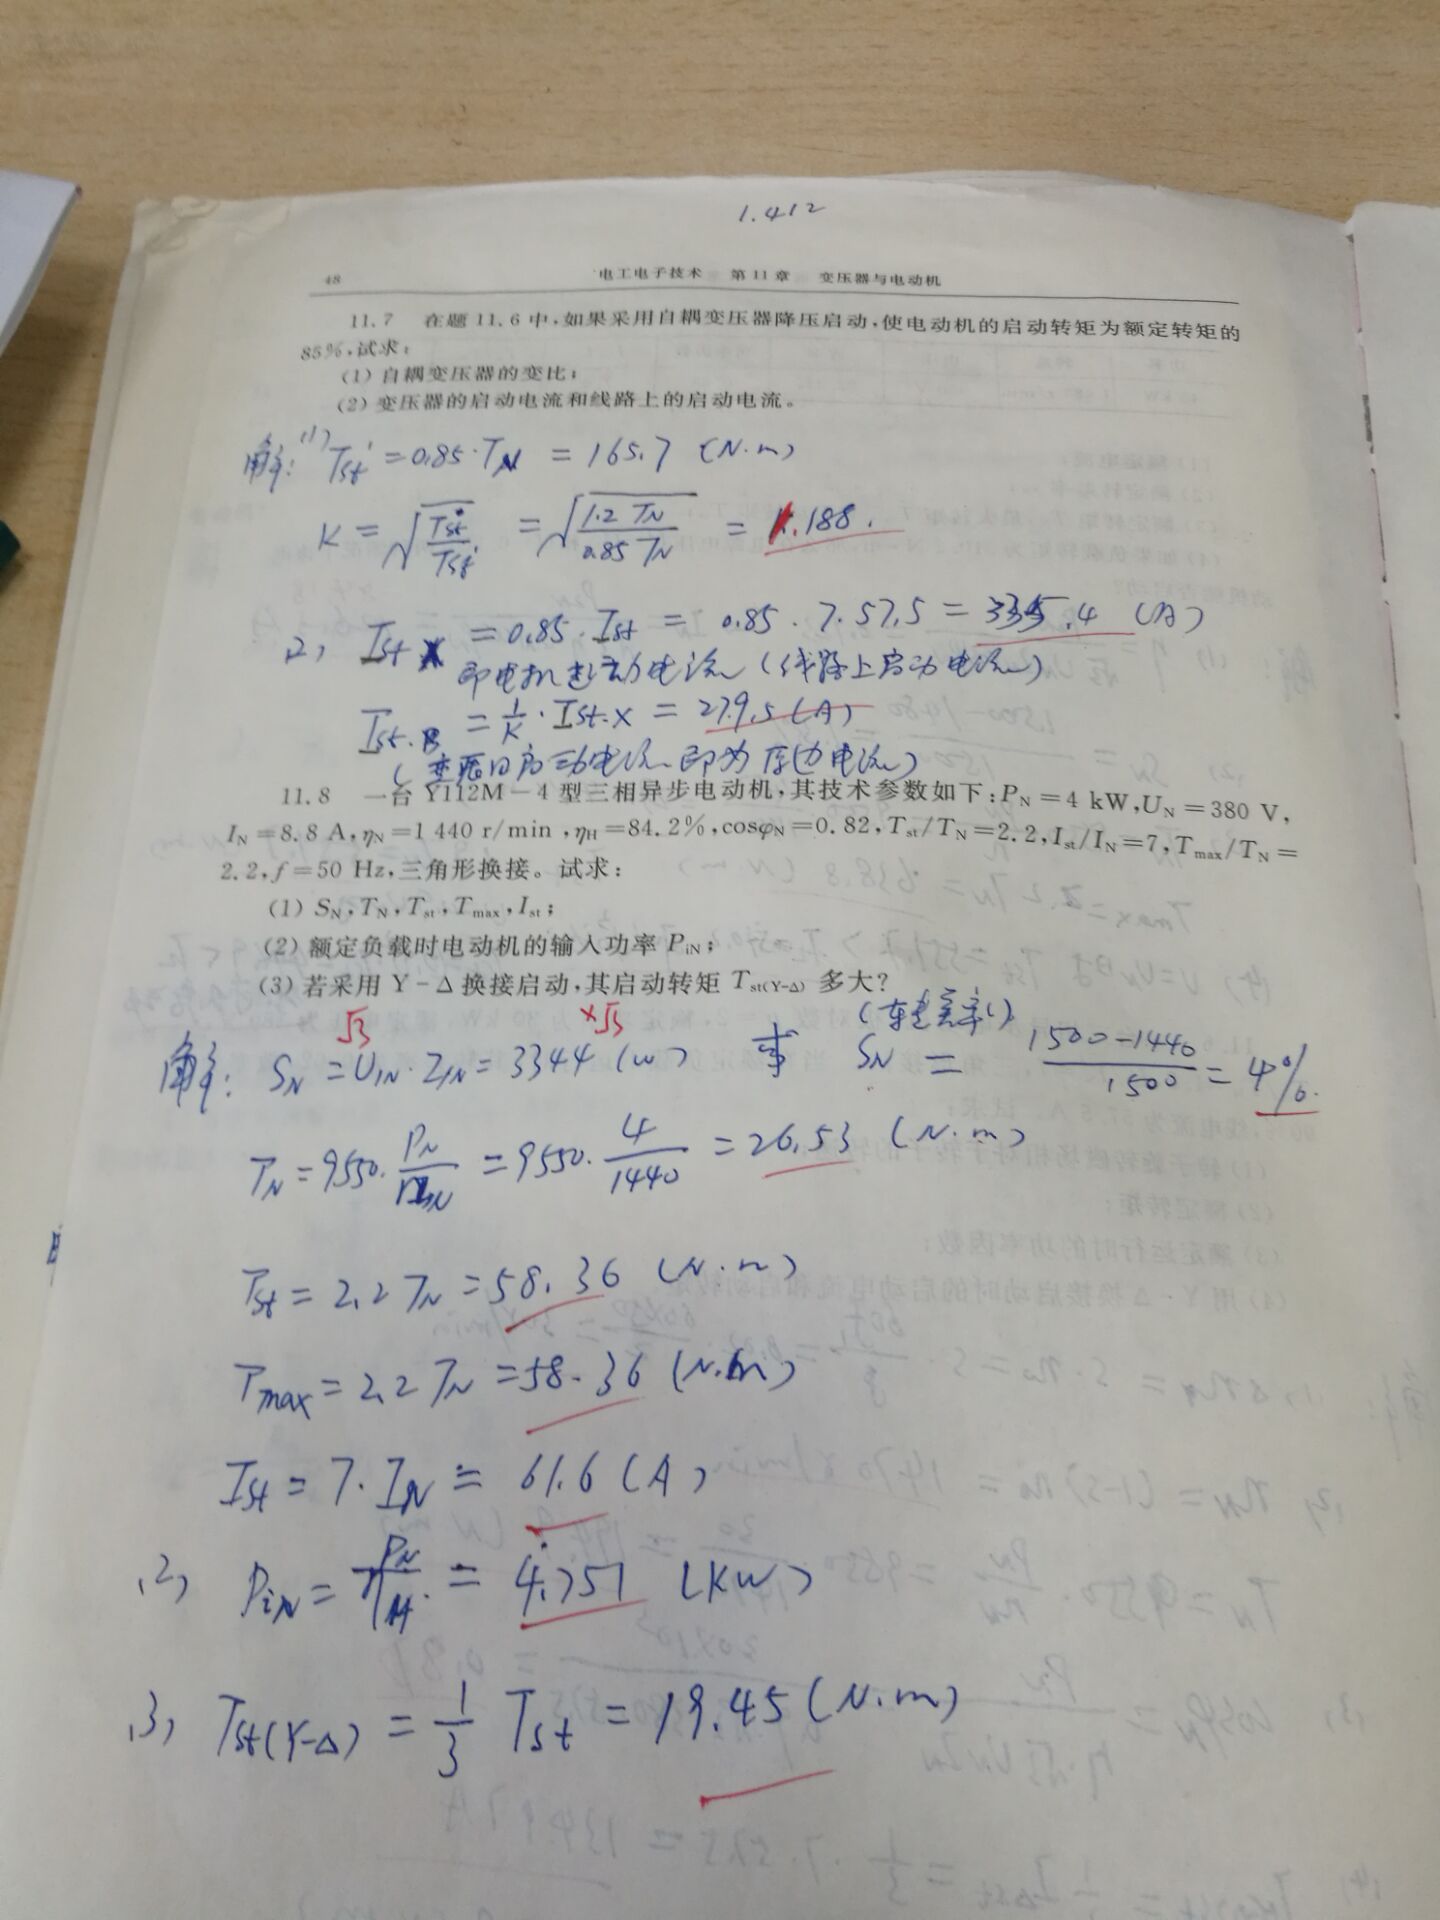 1.412
48 电工电子技术 第11章 变压器与电动机
11.7 在题11.6中,如果采用自耦变压器降压启动,使电动机的启动转矩为额定转矩的
85%,试求:
(1) 自耦变压器的变比;
(2) 变压器的启动电流和线路上的启动电流。
解: (1) Tst' = 0.85·TN = 165.7 (N·m)
K = √(Tst/Tst') = √(1.2 TN/0.85 TN) = 1.188.
(2) Ist·X = 0.85·Ist = 0.85·7·57.5 = 335.4 (A)
即电机起动电流(线路上启动电流)
Ist·B = 1/K·Ist·X = 279.5 (A)
(变压的启动电流即为原边电流)
11.8 一台 Y112M-4 型三相异步电动机,其技术参数如下: PN=4 kW, UN=380 V,
IN=8.8 A, ηN=1 440 r/min , ηH=84.2%, cosφN=0.82, Tst/TN=2.2, Ist/IN=7, Tmax/TN=
2.2, f=50 Hz,三角形换接。试求:
(1) SN, TN, Tst, Tmax, Ist;
(2) 额定负载时电动机的输入功率 PiN;
(3) 若采用 Y-Δ 换接启动,其启动转矩 Tst(Y-Δ) 多大?
√3 ×√3 (转差率)
解: SN = UIN·IIN = 3344 (W) SN = (1500-1440)/1500 = 4%.
TN = 9550·PN/nN = 9550·4/1440 = 26.53 (N·m)
Tst = 2.2 TN = 58.36 (N·m)
Tmax = 2.2 TN = 58.36 (N·m)
Ist = 7·IN = 61.6 (A)
(2) PiN = PN/ηH = 4.751 (KW)
(3) Tst(Y-Δ) = 1/3 Tst = 19.45 (N·m)